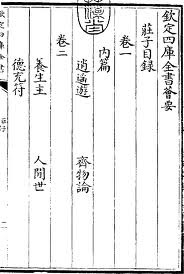 欽定四庫全書薈要
莊子目録
卷一
内篇
逍遙遊 齊物論
卷二
養生主 人間世
德充符